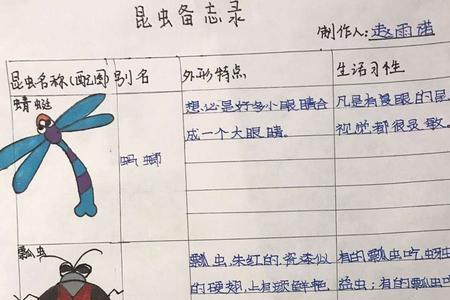 昆虫备志录
制作人:赵雨诺
昆虫名称(配图)
别名
外形特点
生活习性
蜻蜓
蚂螂
想必是好多小眼睛合
成一个大眼睛。
凡是有复眼的昆
视觉都很灵敏。
瓢虫
瓢虫,朱红的瓷漆似
的硬翅,上有
有的瓢虫吃蚜
益虫;有的瓢虫